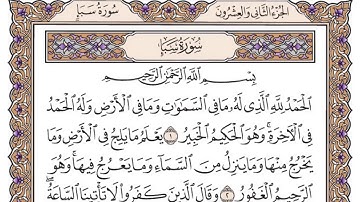 سُورَةُ سَبَإٍ
الجُزْءُ الثَّانِي وَالعِشْرُونَ
سُورَةُ سَبَإٍ
بِسْمِ اللَّهِ الرَّحْمَٰنِ الرَّحِيمِ
الْحَمْدُ لِلَّهِ الَّذِي لَهُ مَا فِي السَّمَٰوَٰتِ وَمَا فِي الْأَرْضِ وَلَهُ الْحَمْدُ
فِي الْآخِرَةِ ۚ وَهُوَ الْحَكِيمُ الْخَبِيرُ ١ يَعْلَمُ مَا يَلِجُ فِي الْأَرْضِ وَمَا
يَخْرُجُ مِنْهَا وَمَا يَنزِلُ مِنَ السَّمَاءِ وَمَا يَعْرُجُ فِيهَا ۚ وَهُوَ
الرَّحِيمُ الْغَفُورُ ٢ وَقَالَ الَّذِينَ كَفَرُوا لَا تَأْتِينَا السَّاعَةُ ۖ